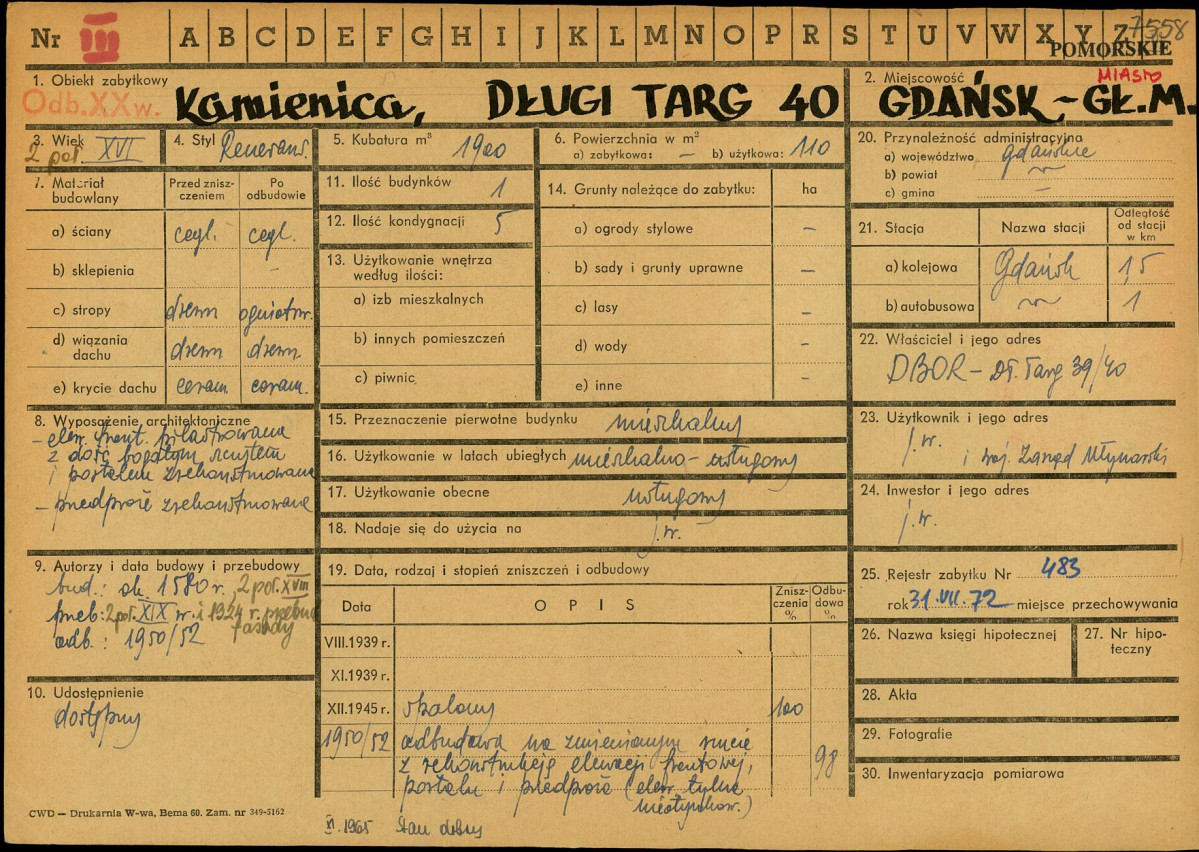 Nr III A B C D E F G H I J K L M N O P R S T U V W X Y Z 7558
POMORSKIE
1. Obiekt zabytkowy
Odb. XX w.
Kamienica, DŁUGI TARG 40
2. Miejscowość
MIASTO
GDAŃSK - GŁ. M.
3. Wiek
2 poł. XVI
4. Styl Renesans.
5. Kubatura m³ 1900
6. Powierzchnia w m²
a) zabytkowa: — b) użytkowa: 110
7. Materiał budowlany
Przed zniszczeniem
Po odbudowie
a) ściany cegl. cegl.
b) sklepienia —
c) stropy drewn ogniotrw.
d) wiązania dachu drewn drewn.
e) krycie dachu ceram ceram.
8. Wyposażenie architektoniczne
- elew. front. pilastrowana
z dość bogatym
i portalem zrekonstruowana
- przedproże zrekonstruowane
9. Autorzy i data budowy i przebudowy
bud.: ok. 1580 r. 2 poł. XVIII
przeb: 2 poł. XIX w. i 1924 r. przebud.
fasady
odb.: 1950/52
10. Udostępnienie
dostępny
11. Ilość budynków 1
12. Ilość kondygnacji 5
13. Użytkowanie wnętrza według ilości:
a) izb mieszkalnych
b) innych pomieszczeń
c) piwnic
14. Grunty należące do zabytku: ha
a) ogrody stylowe —
b) sady i grunty uprawne —
c) lasy —
d) wody —
e) inne —
15. Przeznaczenie pierwotne budynku mieszkalny
16. Użytkowanie w latach ubiegłych mieszkalno-usługowy
17. Użytkowanie obecne usługowy
18. Nadaje się do użycia na j.w.
19. Data, rodzaj i stopień zniszczeń i odbudowy
Data OPIS Zniszczenia % Odbudowa %
VIII.1939 r.
XI.1939 r.
XII.1945 r. spalony 100
1950/52 odbudowa na zmienionym rzucie
z rekonstrukcją elewacji frontowej,
portalu i przedproże (elew. tylna 98
nieotynkow.)
XI.1965 Stan dobry
20. Przynależność administracyjna
a) województwo gdańskie
b) powiat
c) gmina —
21. Stacja Nazwa stacji Odległość od stacji w km
a) kolejowa Gdańsk 1,5
b) autobusowa 1
22. Właściciel i jego adres
DBOR - Dł. Targ 39/40
23. Użytkownik i jego adres
j.w.
i woj. Zarząd Młynarski
24. Inwestor i jego adres
j.w.
25. Rejestr zabytku Nr 483
rok 31.VII.72 miejsce przechowywania
26. Nazwa księgi hipotecznej
27. Nr hipoteczny
28. Akta
29. Fotografie
30. Inwentaryzacja pomiarowa
CWD — Drukarnia W-wa, Bema 60. Zam. nr 349-5162